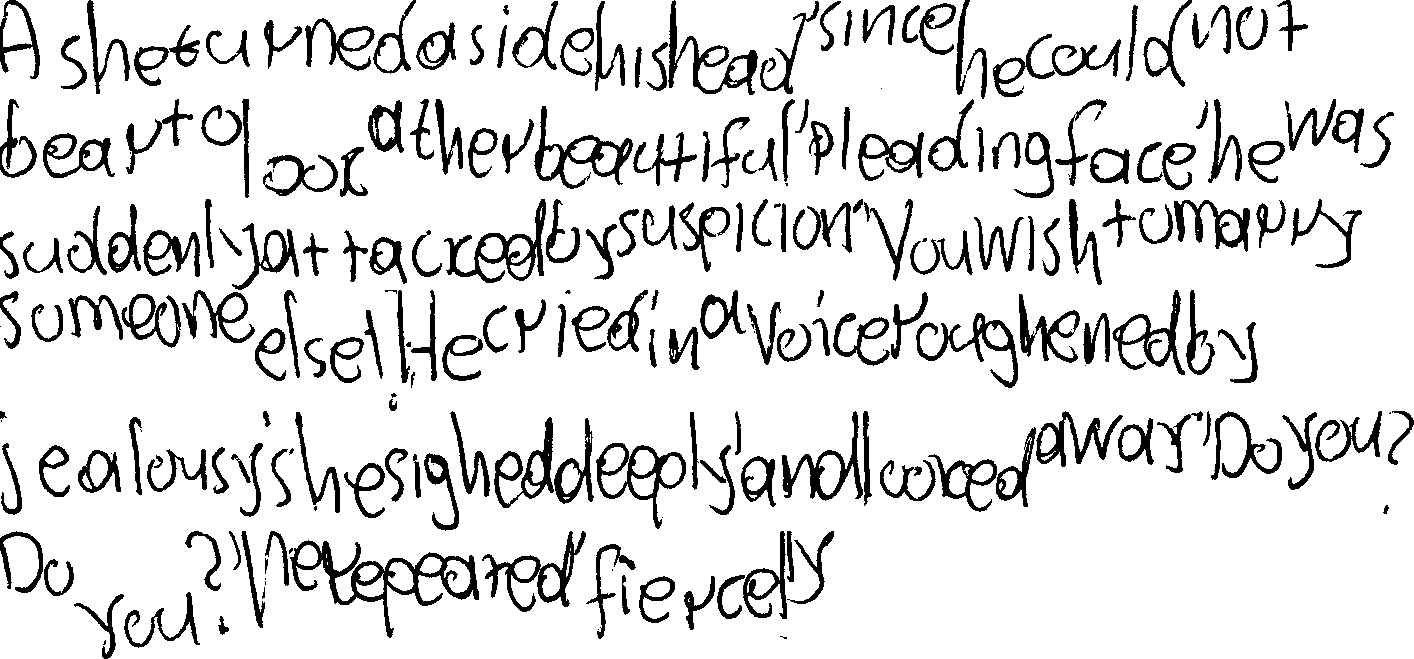 As he turned aside his head, since he could not
bear to look at her beautiful, pleading face, he was
suddenly attacked by suspicion. "You wish to marry
someone else!" He cried, in a voice roughened by
jealousy, she sighed deeply, and looked away. "Do you?
Do you?" he repeated, fiercely